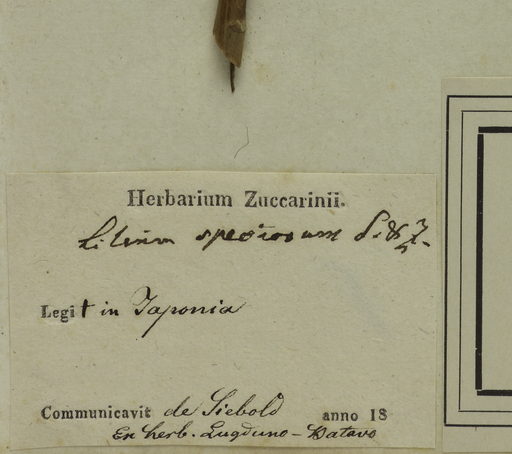 Herbarium Zuccarinii.
Lilium speciosum S. & Z.
Legit in Japonia
Communicavit de Siebold anno 18
Ex herb. Lugduno-Batavo